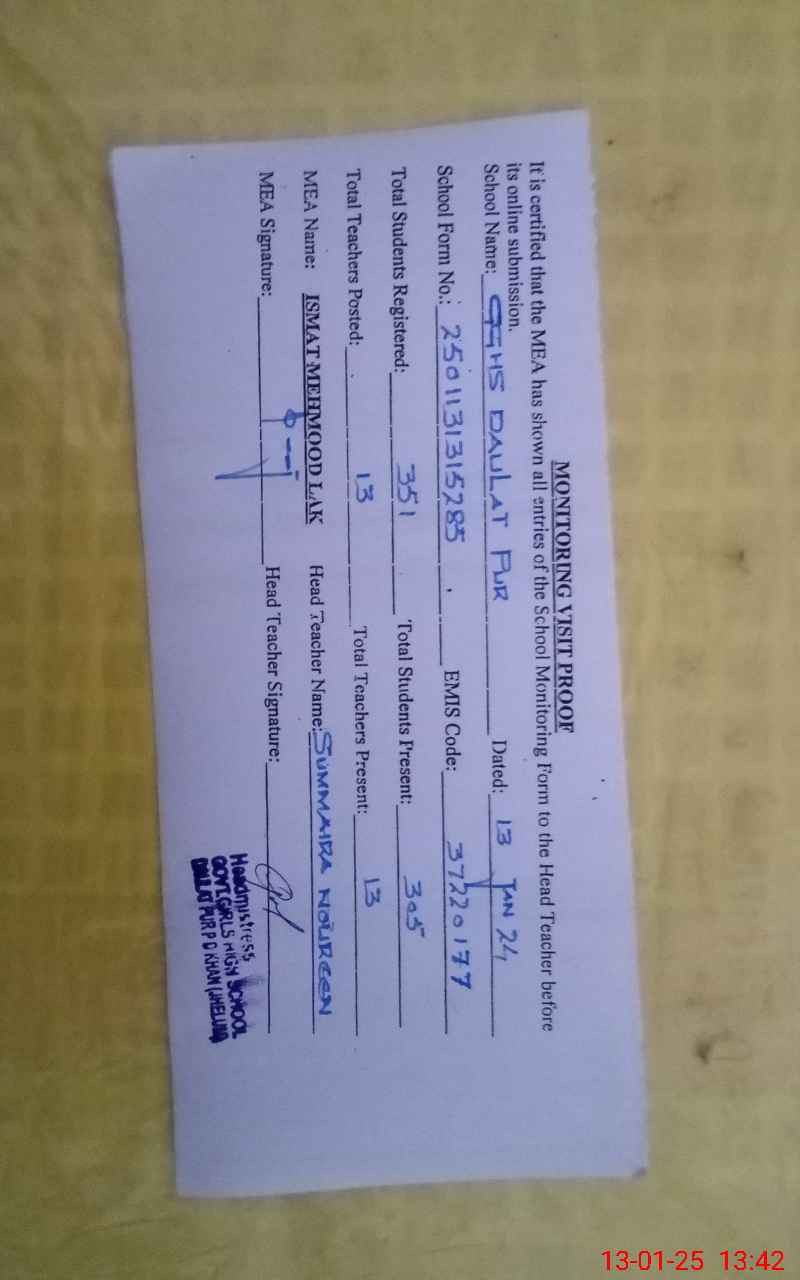 MONITORING VISIT PROOF
It is certified that the MEA has shown all entries of the School Monitoring Form to the Head Teacher before
its online submission.
School Name: GGHS DAULAT PUR Dated: 13 JAN 24
School Form No.: 2501131315285 EMIS Code: 37220177
Total Students Registered: 351 Total Students Present: 305
Total Teachers Posted: 13 Total Teachers Present: 13
MEA Name: ISMAT MEHMOOD LAK Head Teacher Name: SUMMAIRA NOUREEN
MEA Signature: Head Teacher Signature:
Headmistress
GOVT. GIRLS HIGH SCHOOL
DAULAT PUR P D KHAN (JHELUM)
13-01-25 13:42